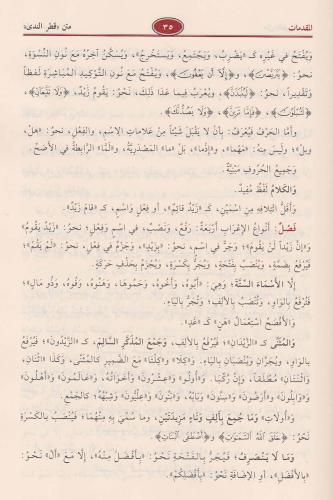 المقدمات ٣٥ متن «قطر الندى»
وَيُفْتَحُ فِي غَيْرِهِ كَـ «يَضْرِبُ، وَيَجْتَمِعُ، وَيَسْتَخْرِجُ»، وَيُسَكَّنُ آخِرُهُ مَعَ نُونِ النِّسْوَةِ،
نَحْوُ: ﴿يَتَرَبَّصْنَ﴾، و﴿إِلَّا أَن يَعْفُونَ﴾، وَيُفْتَحُ مَعَ نُونِ التَّوْكِيدِ الْمُبَاشِرَةِ لَفْظاً
وَتَقْدِيراً، نَحْوُ: ﴿لَيُنْبَذَنَّ﴾، وَيُعْرَبُ فِيمَا عَدَا ذَلِكَ، نَحْوُ: يَقُومُ زَيْدٌ، ﴿وَلَا تَتَّبِعَانِّ﴾،
﴿لَتُبْلَوُنَّ﴾، ﴿فَإِمَّا تَرَيِنَّ﴾، ﴿وَلَا يَصُدُّنَّكَ﴾.
وَأَمَّا الْحَرْفُ فَيُعْرَفُ: بِأَنْ لَا يَقْبَلَ شَيْئاً مِنْ عَلَامَاتِ الِاسْمِ، وَالْفِعْلِ، نَحْوُ: «هَلْ،
وبل»؛ وَلَيْسَ مِنْهُ: «مَهْمَا»، و«إِذْمَا»، بَلْ «مَا» الْمَصْدَرِيَّةُ، و«لَمَّا» الرَّابِطَةُ فِي الْأَصَحِّ.
وَجَمِيعُ الْحُرُوفِ مَبْنِيَّةٌ.
وَالْكَلَامُ لَفْظٌ مُفِيدٌ.
وَأَقَلُّ ائْتِلَافِهِ مِنِ اسْمَيْنِ، كَـ «زَيْدٌ قَائِمٌ»، أَوْ فِعْلٍ وَاسْمٍ، كَـ «قَامَ زَيْدٌ».
فَصْلٌ: أَنْوَاعُ الْإِعْرَابِ أَرْبَعَةٌ: رَفْعٌ، وَنَصْبٌ، فِي اسْمٍ وَفِعْلٍ؛ نَحْوُ: «زَيْدٌ يَقُومُ»
و«إِنَّ زَيْداً لَنْ يَقُومَ»؛ وَجَرٌّ فِي اسْمٍ، نَحْوُ: «بِزَيْدٍ»، وَجَزْمٌ فِي فِعْلٍ، نَحْوُ: «لَمْ يَقُمْ»؛
فَيُرْفَعُ بِضَمَّةٍ، وَيُنْصَبُ بِفَتْحَةٍ، وَيُجَرُّ بِكَسْرَةٍ، وَيُجْزَمُ بِحَذْفِ حَرَكَةٍ.
إِلَّا الْأَسْمَاءَ السِّتَّةَ، وَهِيَ: «أَبُوهُ، وَأَخُوهُ، وَحَمُوهَا، وَهَنُوهُ، وَفُوهُ، وَذُو مَالٍ»؛
فَتُرْفَعُ بِالْوَاوِ، وَتُنْصَبُ بِالْأَلِفِ، وَتُجَرُّ بِالْيَاءِ.
وَالْأَفْصَحُ اسْتِعْمَالُ «هَنٍ» كَـ «غَدٍ».
وَالْمُثَنَّى كَـ «الزَّيْدَانِ»؛ فَيُرْفَعُ بِالْأَلِفِ، وَجَمْعَ الْمُذَكَّرِ السَّالِمَ، كَـ «الزَّيْدُونَ»؛ فَيُرْفَعُ
بِالْوَاوِ، وَيُجَرَّانِ وَيُنْصَبَانِ بِالْيَاءِ. و«كِلَا» و«كِلْتَا» مَعَ الضَّمِيرِ كَالْمُثَنَّى، وَكَذَا «اثْنَانِ،
وَاثْنَتَانِ» مُطْلَقاً، وَإِنْ رُكِّبَا. و«أُولُو» و«عِشْرُونَ» وَأَخَوَاتُهُ، و«عَالَمُونَ» و«أَهْلُونَ»
و«وَابِلُونَ» و«أَرَضُونَ» و«سِنُونَ» وَبَابُهُ، و«بَنُونَ» و«عِلِّيُّونَ» وَشِبْهُهُ؛ كَالْجَمْعِ.
و«أُولَاتِ» وَمَا جُمِعَ بِأَلِفٍ وَتَاءٍ مَزِيدَتَيْنِ، وَمَا سُمِّيَ بِهِ مِنْهُمَا؛ فَيُنْصَبُ بِالْكَسْرَةِ
نَحْوُ: ﴿خَلَقَ اللَّهُ السَّمَوَاتِ﴾ و﴿أَصْطَفَى الْبَنَاتِ﴾.
وَمَا لَا يَنْصَرِفُ؛ فَيُجَرُّ بِالْفَتْحَةِ، نَحْوُ: «بِأَفْضَلَ مِنْهُ»، إِلَّا مَعَ «أَلْ» نَحْوُ:
«بِالْأَفْضَلِ»، أَوِ الْإِضَافَةِ نَحْوُ: «بِأَفْضَلِكُمْ».